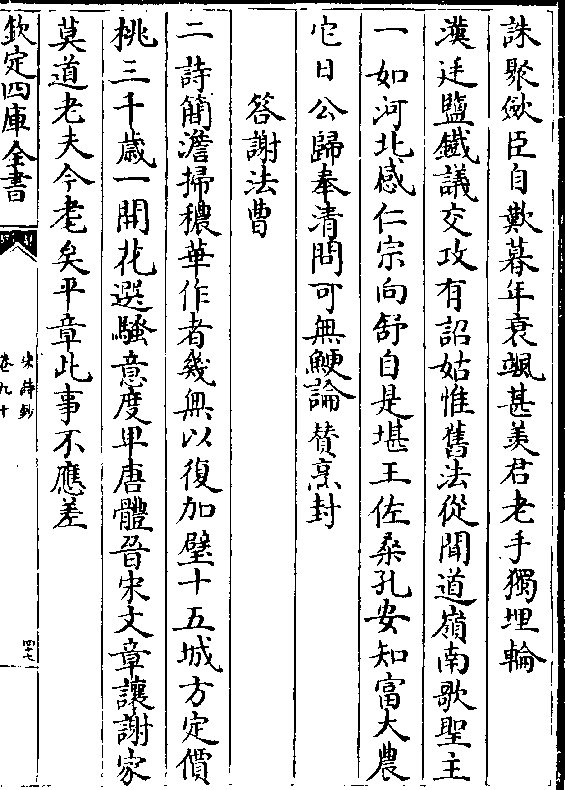 誅聚斂臣自歎暮年衰颯甚羨君老手獨埋輪
漢廷鹽鐵議交攻有詔姑惟舊法從聞道嶺南歌聖主
一如河北感仁宗向舒自是堪王佐桑孔安知富大農
它日公歸奉清問可無鯁論贊烹封
答謝法曹
二詩簡澹掃穠華作者幾無以復加璧十五城方定價
桃三千歲一開花選騷意度卑唐體晉宋文章讓謝家
莫道老夫今老矣平章此事不應差
欽定四庫全書
宋詩鈔
卷九十
四七